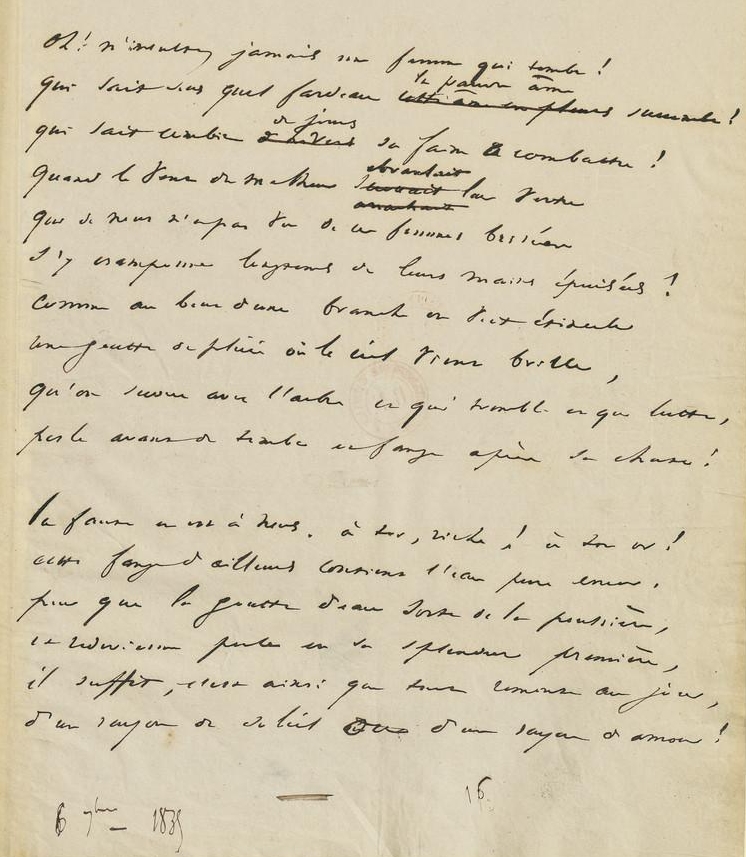 Oh! n'insultez jamais une femme qui tombe!
la pauvre âme
qui sait sous quel fardeau cette âme en pleurs succombe!
de jours
qui sait combien d'hivers sa faim a combattu!
ébranlait
Quand le vent du malheur leur vertu
arrachait
qui de nous n'a pas vu de ces femmes brisées
s'y cramponner longtemps de leurs mains épuisées!
comme au bout d'une branche on voit étinceler
une goutte de pluie où le ciel vient briller,
qu'on secoue avec l'arbre et qui tremble et qui lutte,
perle avant de tomber et fange après sa chute!
la faute en est à nous. à toi, riche! à ton or!
cette fange d'ailleurs contient l'eau pure encor.
pour que la goutte d'eau sorte de la poussière,
et redevienne perle en sa splendeur première,
il suffit, c'est ainsi que tout remonte au jour,
d'un rayon de soleil ou d'un rayon d'amour!
16
6 7bre 1835